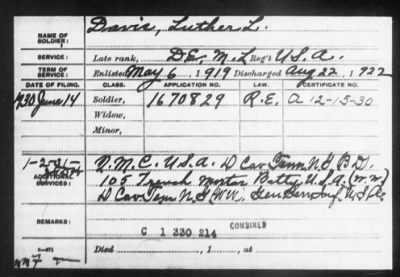 NAME OF SOLDIER: Davis, Luther L.
SERVICE: Late rank, DE. M. L Reg't U.S.A.
TERM OF SERVICE: Enlisted May 6, 1919 Discharged Aug 22, 1922
DATE OF FILING. CLASS. APPLICATION NO. LAW. CERTIFICATE NO.
1930 June 14 Soldier, 1670829 R.E. A 12-15-30
Widow,
Minor,
1-2-21-
ADDITIONAL SERVICES: Q.M.C. U.S.A. D Cav Tenn N.G.
105 Trench Mortar Batty U.S.A. (W.W.)
D Cav Tenn N.G. W.W. Gen Serv Inf. U.S.A.
REMARKS: C 1 330 214 COMBINED
Died , 1 , at